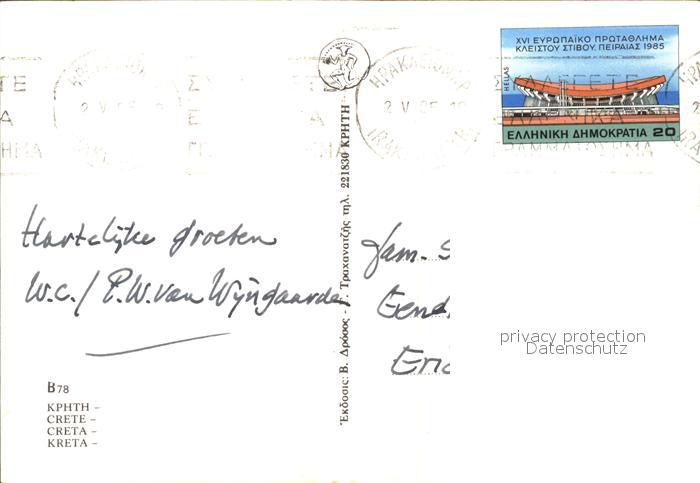 XVI ΕΥΡΩΠΑΪΚΟ ΠΡΩΤΑΘΛΗΜΑ
ΚΛΕΙΣΤΟΥ ΣΤΙΒΟΥ. ΠΕΙΡΑΙΑΣ 1985
HELLAS
ΕΛΛΗΝΙΚΗ ΔΗΜΟΚΡΑΤΙΑ 20
ΗΡΑΚΛΕΙΟΝ
2 V 85
Hartelijke groeten
W.C./P.W. van Wijngaarden
Fam. S
Eend
Eric
privacy protection
Datenschutz
Έκδοσις: Β. Δρόσος - Γ. Τραχανατζής τηλ. 221830 ΚΡΗΤΗ
B78
ΚΡΗΤΗ –
CRETE –
CRETA –
KRETA –